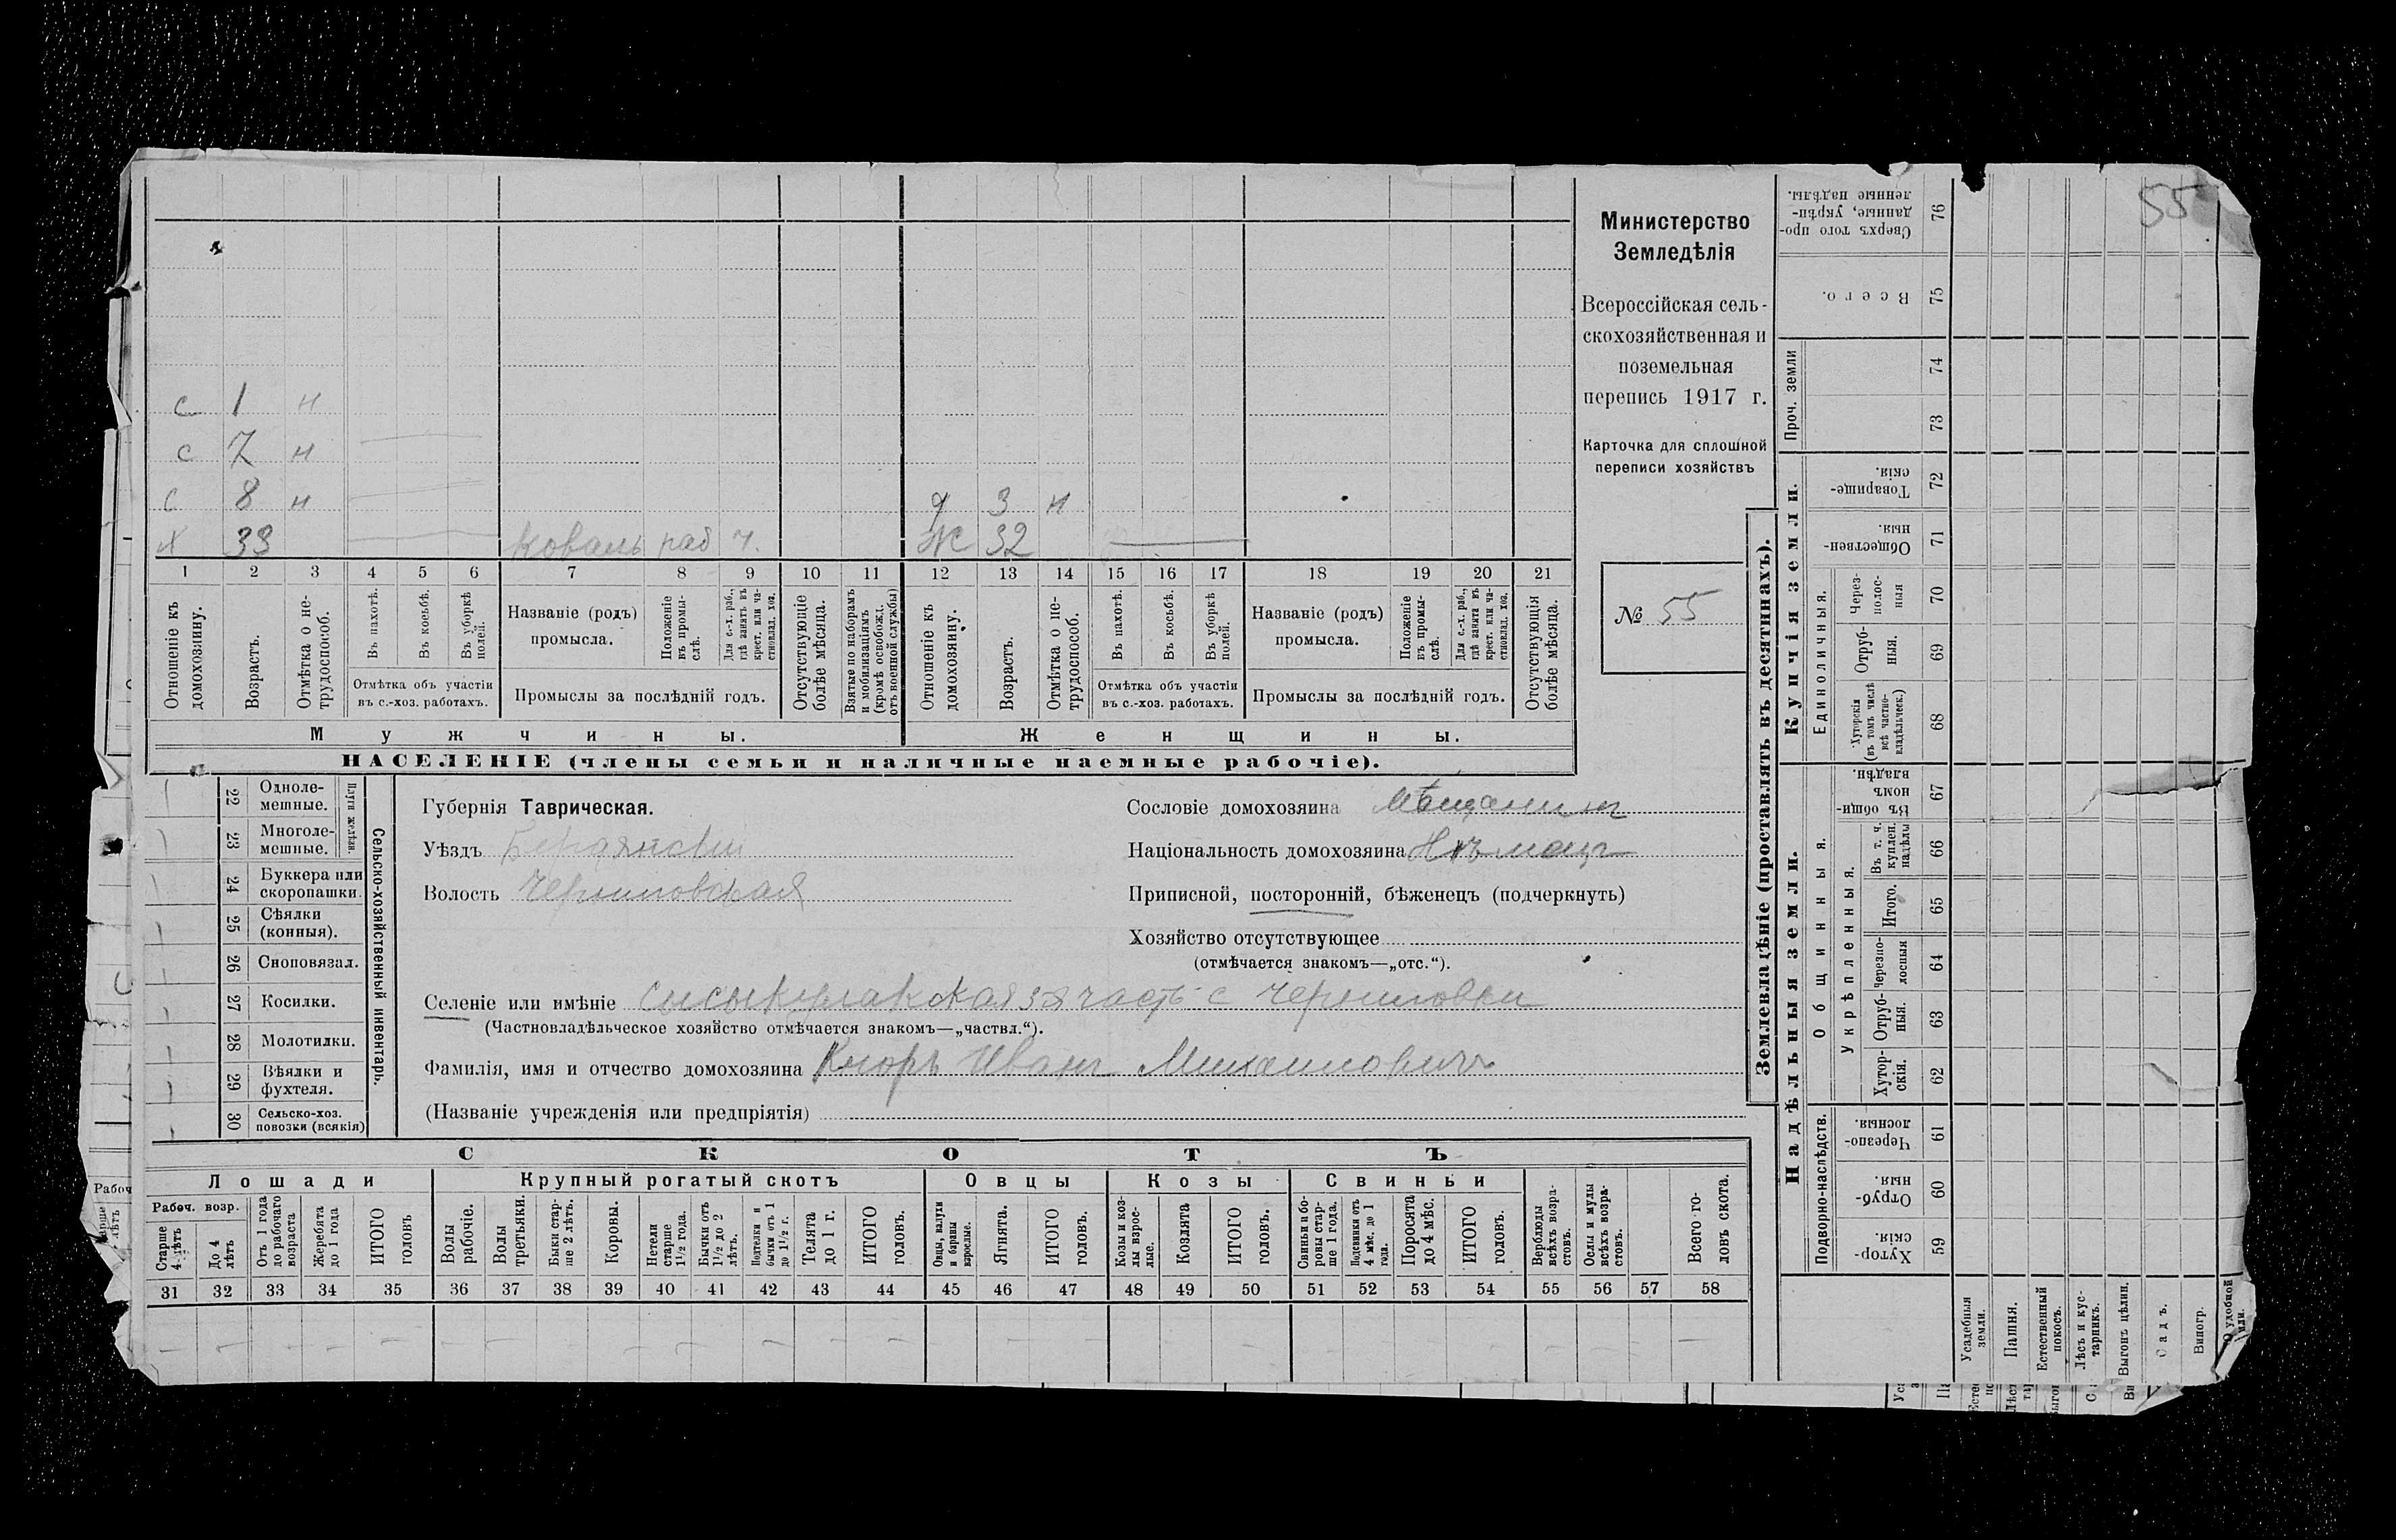 с 1 н
с 7 н
с 8 н д 3 н
х 33 коваль раб ч. Ж 32
1 2 3 4 5 6 7 8 9 10 11 12 13 14 15 16 17 18 19 20 21
Отношеніе къ домохозяину.
Возрастъ.
Отмѣтка о не-трудоспособ.
Въ пахотѣ.
Въ косьбѣ.
Въ уборкѣ полей.
Отмѣтка объ участіи
въ с.-хоз. работахъ.
Названіе (родъ)
промысла.
Положеніе въ промы-слѣ.
Для с.-х. раб., гдѣ занятъ въ крест. или ча-стновлад. хоз.
Промыслы за послѣдній годъ.
Отсутствующіе болѣе мѣсяца.
Взятые по наборамъ и мобилизаціямъ (кромѣ освобожд. отъ военной службы)
Отношеніе къ домохозяину.
Возрастъ.
Отмѣтка о не-трудоспособ.
Въ пахотѣ.
Въ косьбѣ.
Въ уборкѣ полей.
Отмѣтка объ участіи
въ с.-хоз. работахъ.
Названіе (родъ)
промысла.
Положеніе въ промы-слѣ.
Для с.-х. раб., гдѣ занятъ въ крест. или ча-стновлад. хоз.
Промыслы за послѣдній годъ.
Отсутствующія болѣе мѣсяца.
Мужчины. Женщины.
НАСЕЛЕНІЕ (члены семьи и наличные наемные рабочіе).
Министерство
Земледѣлія
Всероссійская сель-
скохозяйственная и
поземельная
перепись 1917 г.
Карточка для сплошной
переписи хозяйствъ
№ 55
22 Одноле-мешные.
23 Многоле-мешные.
Плуги желѣзн.
24 Буккера или скоропашки.
25 Сѣялки (конныя).
26 Сноповязал.
27 Косилки.
28 Молотилки.
29 Вѣялки и фухтеля.
30 Сельско-хоз. повозки (всякія)
Сельско-хозяйственный инвентарь.
Губернія Таврическая.
Уѣздъ Бердянскій
Волость Черниговская
Сословіе домохозяина Мѣщанинъ
Національность домохозяина Нѣмецъ
Приписной, посторонній, бѣженецъ (подчеркнуть)
Хозяйство отсутствующее
(отмѣчается знакомъ—„отс.“).
Селеніе или имѣніе 3я часть с Черниговки
(Частновладѣльческое хозяйство отмѣчается знакомъ—„частвл.“).
Фамилія, имя и отчество домохозяина Кноръ Иванъ Михаиловичъ
(Названіе учрежденія или предпріятія)
СКОТЪ
Лошади Крупный рогатый скотъ Овцы Козы Свиньи
Рабоч. возр.
Старше 4 лѣтъ
До 4 лѣтъ
Отъ 1 года до рабочаго возраста
Жеребята до 1 года
ИТОГО головъ
Волы рабочіе.
Волы третьяки.
Быки стар-ше 2 лѣтъ.
Коровы.
Нетели старше 1½ года.
Бычки отъ 1½ до 2 лѣтъ.
Подтелки и бычки отъ 1 до 1½ г.
Телята до 1 г.
ИТОГО головъ.
Овцы, валухи и бараны взрослые.
Ягнята.
ИТОГО головъ.
Козы и коз-лы взрос-лые.
Козлята
ИТОГО головъ.
Свиньи и бо-ровы стар-ше 1 года.
Подсвинки отъ 4 мѣс. до 1 года.
Поросята до 4 мѣс.
ИТОГО головъ.
Верблюды всѣхъ возра-стовъ.
Ослы и мулы всѣхъ возра-стовъ.
Всего го-ловъ скота.
31 32 33 34 35 36 37 38 39 40 41 42 43 44 45 46 47 48 49 50 51 52 53 54 55 56 57 58
55
Землевладѣніе (проставлять въ десятинахъ).
Купчія земли.
Надѣльныя земли.
Сверхъ того про-данные, укрѣп-ленные надѣлы. 76
Всего. 75
Проч. земли 74 73
Товарище-скія. 72
Обществен-ныя. 71
Единоличныя.
Через-полос-ныя 70
Отруб-ныя. 69
Хуторскія (въ томъ числѣ всѣ частно-владѣльческ.) 68
Общинныя.
Въ общи-номъ владѣн. 67
Укрѣпленныя.
Въ т. ч. куплен. надѣлы 66
Итого. 65
Черезпо-лосныя 64
Отруб-ныя. 63
Хутор-скія. 62
Подворно-наслѣдств.
Черезпо-лосныя. 61
Отруб-ныя. 60
Хутор-скія. 59
Усадебныя земли.
Пашня.
Естественный покосъ.
Лѣсъ и кус-тарникъ.
Выгонъ цѣлин.
Садъ.
Виногр.